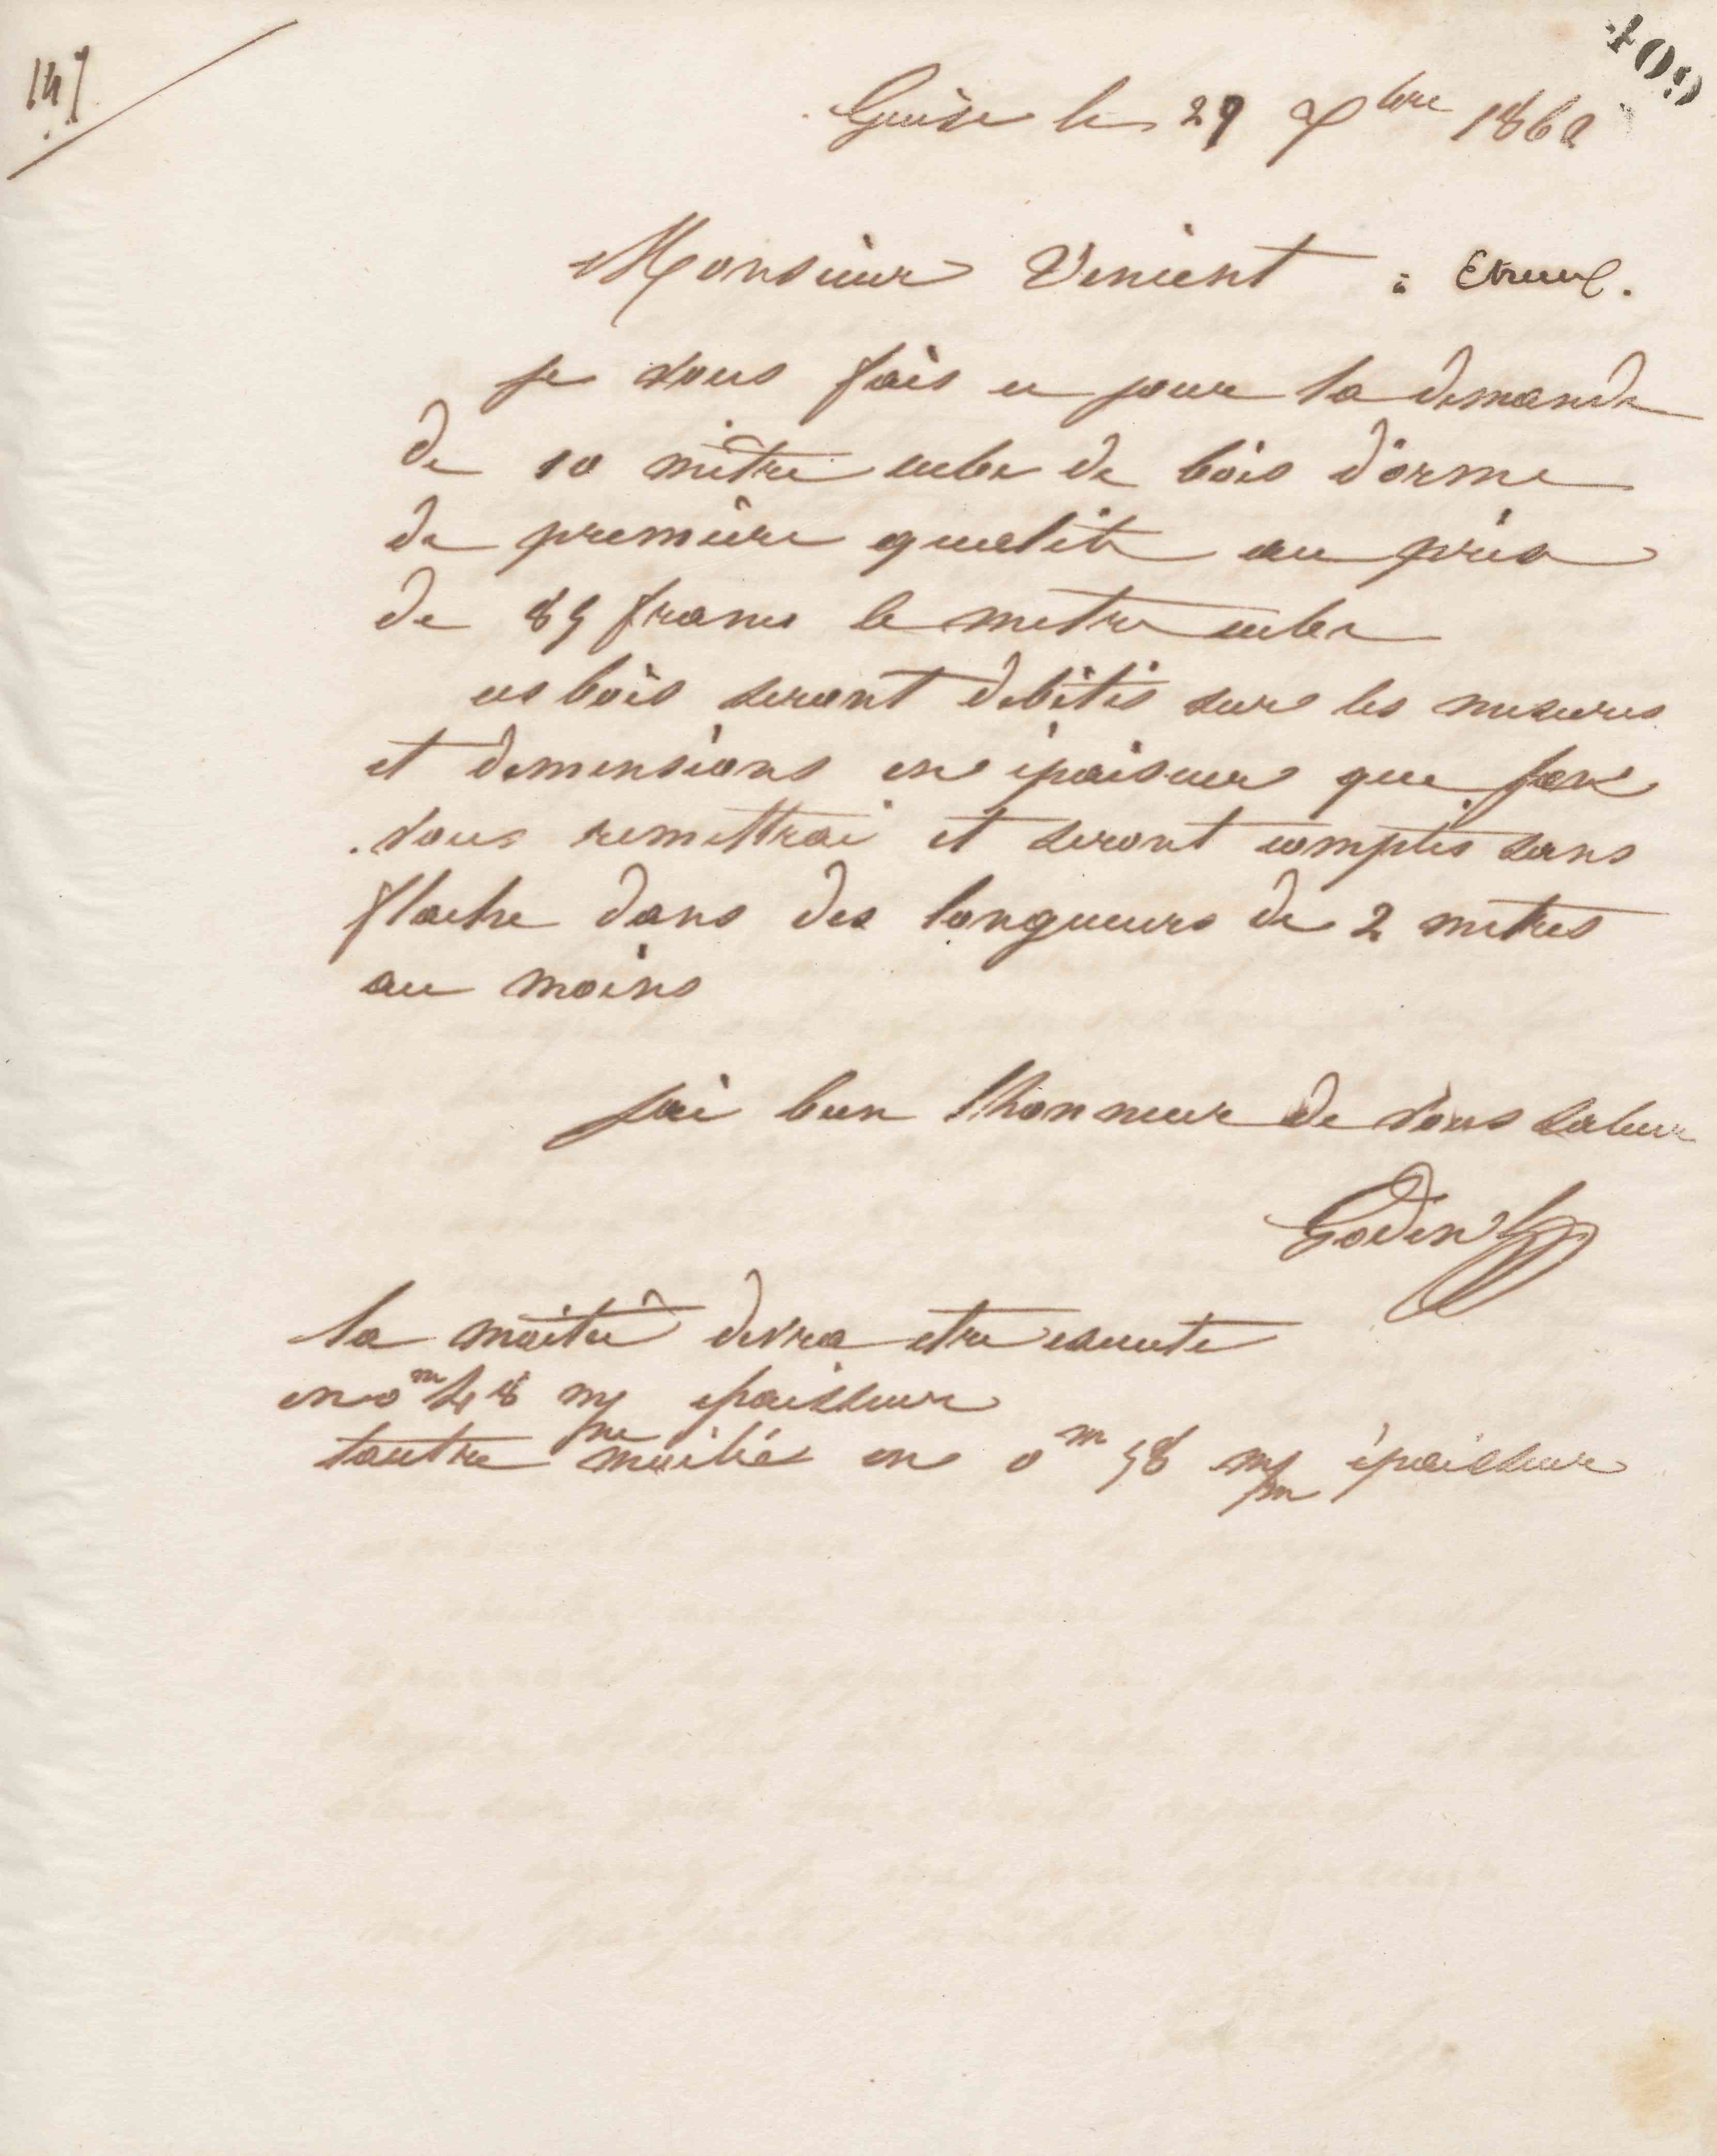 147
409
Guise le 29 Xbre 1862
Monsieur Venient à Etreux.
je vous fais ce jour la demande
de 10 mètre cube de bois d'orme
de première qualité au prix
de 85 francs le metre cube
ces bois seront debités sur les mesures
et dimensions en épaiseur que je
vous remettrai et seront comptés sans
flache dans des longueurs de 2 metres
au moins
jai bien lhonneur de vous saluer
Godin
la moitié devra être ensuite
en 0m 48 m/m épaisseur
lautre moitié en 0m 58 m/m épaisseur